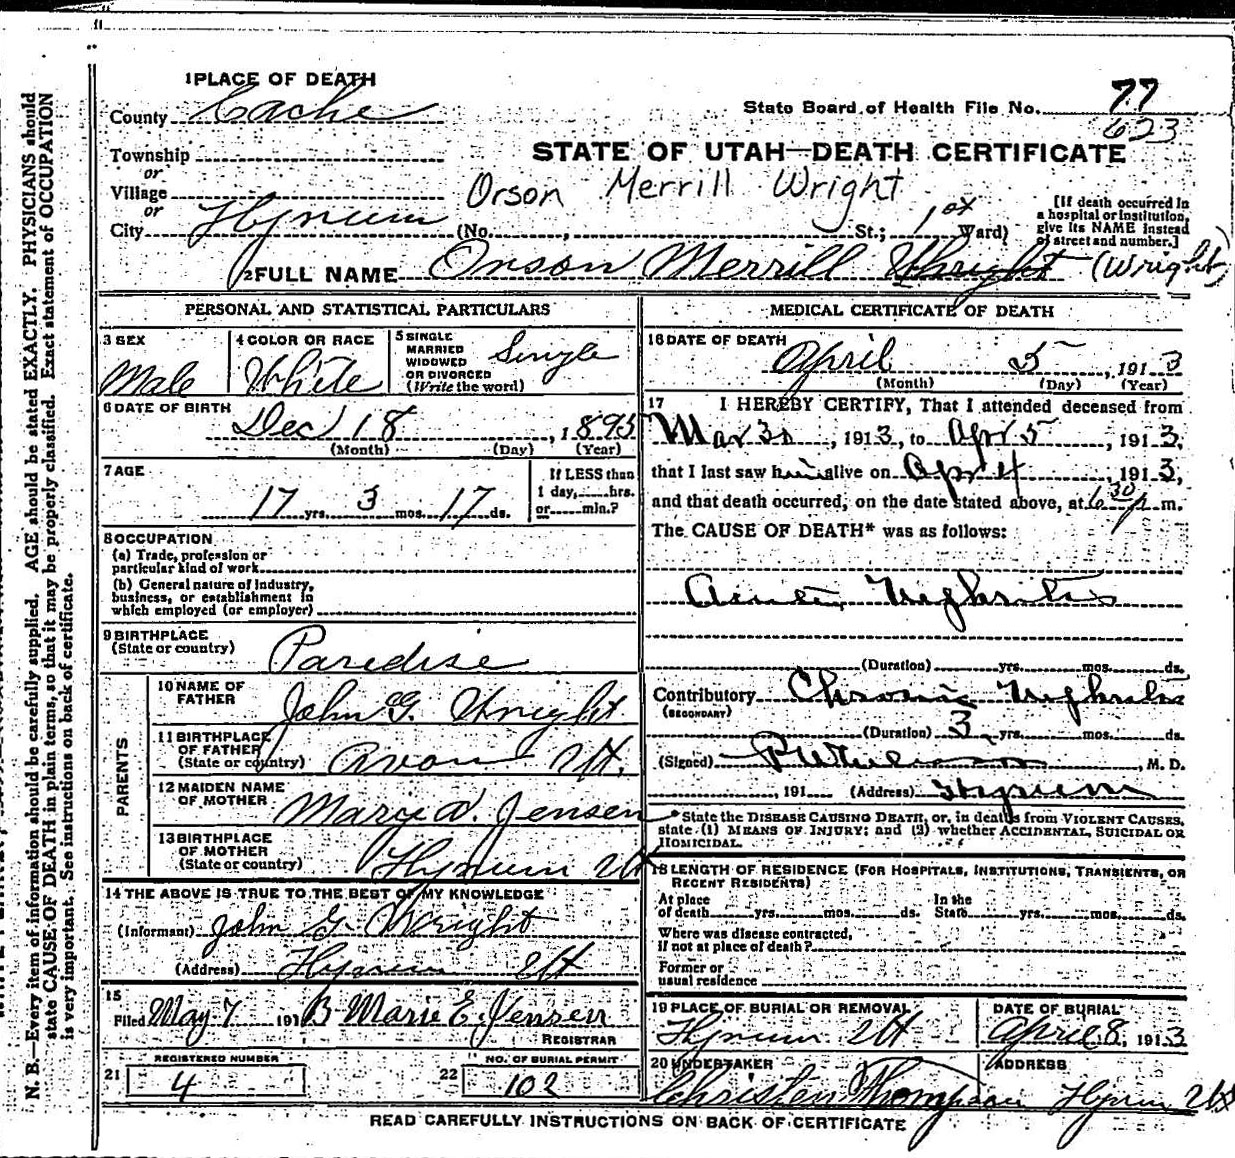 1 PLACE OF DEATH
County Cache
State Board of Health File No. 77
623
Township
or
STATE OF UTAH—DEATH CERTIFICATE
Village
or
Orson Merrill Wright
City Hyrum (No. , St.; 1st Ward)
[If death occurred in
a hospital or institution,
give its NAME instead
of street and number.]
2 FULL NAME Orson Merrill Wright (Wright)
PERSONAL AND STATISTICAL PARTICULARS
3 SEX
Male
4 COLOR OR RACE
White
5 SINGLE
MARRIED
WIDOWED
OR DIVORCED
(Write the word)
Single
6 DATE OF BIRTH
Dec 18, 1895
(Month) (Day) (Year)
7 AGE
17 yrs. 3 mos. 17 ds.
If LESS than
1 day, hrs.
or min.?
8 OCCUPATION
(a) Trade, profession or
particular kind of work
(b) General nature of industry,
business, or establishment in
which employed (or employer)
9 BIRTHPLACE
(State or country) Paradise
PARENTS
10 NAME OF
FATHER John G. Wright
11 BIRTHPLACE
OF FATHER
(State or country) Avon Ut.
12 MAIDEN NAME
OF MOTHER Mary D. Jensen
13 BIRTHPLACE
OF MOTHER
(State or country) Hyrum Ut
14 THE ABOVE IS TRUE TO THE BEST OF MY KNOWLEDGE
(Informant) John G. Wright
(Address) Hyrum Ut
15
Filed May 7 191 3 Marie E. Jensen
REGISTRAR
21 REGISTERED NUMBER
4
22 NO. OF BURIAL PERMIT
102
MEDICAL CERTIFICATE OF DEATH
16 DATE OF DEATH
April 5, 1913
(Month) (Day) (Year)
17 I HEREBY CERTIFY, That I attended deceased from
Mar 30, 1913, to Apr 5, 1913,
that I last saw him alive on Apr 4 1913,
and that death occurred, on the date stated above, at 6 30 p m.
The CAUSE OF DEATH* was as follows:
Acute Nephritis
(Duration) yrs. mos. ds.
Contributory Chronic Nephritis
(SECONDARY)
(Duration) 3 yrs. mos. ds.
(Signed) , M. D.
, 191 (Address) Hyrum
*State the DISEASE CAUSING DEATH, or, in deaths from VIOLENT CAUSES,
state (1) MEANS OF INJURY; and (2) whether ACCIDENTAL, SUICIDAL OR
HOMICIDAL.
18 LENGTH OF RESIDENCE (FOR HOSPITALS, INSTITUTIONS, TRANSIENTS, OR
RECENT RESIDENTS)
At place
of death yrs. mos. ds.
In the
State yrs. mos. ds.
Where was disease contracted,
if not at place of death?
Former or
usual residence
19 PLACE OF BURIAL OR REMOVAL
Hyrum Ut
DATE OF BURIAL
April 8, 1913
20 UNDERTAKER
Christen Thompson
ADDRESS
Hyrum Ut
READ CAREFULLY INSTRUCTIONS ON BACK OF CERTIFICATE
N. B.—Every item of information should be carefully supplied. AGE should be stated EXACTLY. PHYSICIANS should
state CAUSE OF DEATH in plain terms, so that it may be properly classified. Exact statement of OCCUPATION
is very important. See instructions on back of certificate.